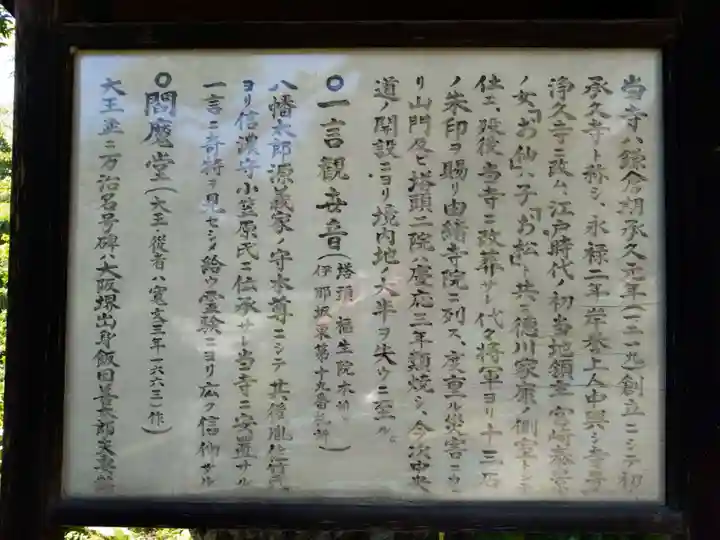 当寺ハ鎌倉期承久元年(一二一九)創立ニシテ初
承久寺ト称シ、永禄二年岸誉上人中興シ寺号
浄久寺ニ改ム、江戸時代ノ初当地領主宮崎泰
ノ女「お仙」ハ子「お松」ト共ニ徳川家康ノ側室トシテ
仕エ、歿後当寺ニ改葬サレ代々将軍ヨリ十三石
ノ朱印ヲ賜リ由緒寺院ニ列ス、度重ル災害ニ
リ山門及ビ塔頭二院ハ慶応三年類焼シ、今次中央
道ノ開設ニヨリ境内地ノ大半ヲ失ウニ至ル。
○一言観世音(塔頭福生院本
伊那坂東第十九番札所)
八幡太郎源義家ノ守本尊ニシテ其後胤
ヨリ信濃守小笠原氏ニ伝承サレ当寺ニ安置サル
一言ニ奇特ヲ見セシメ給ウ霊験ニヨリ広ク信仰サル
○閻魔堂(大王・従者ハ寛文三年一六六三)作)
大王並ニ万治名号碑ハ大阪堺出身飯田善太郎夫妻